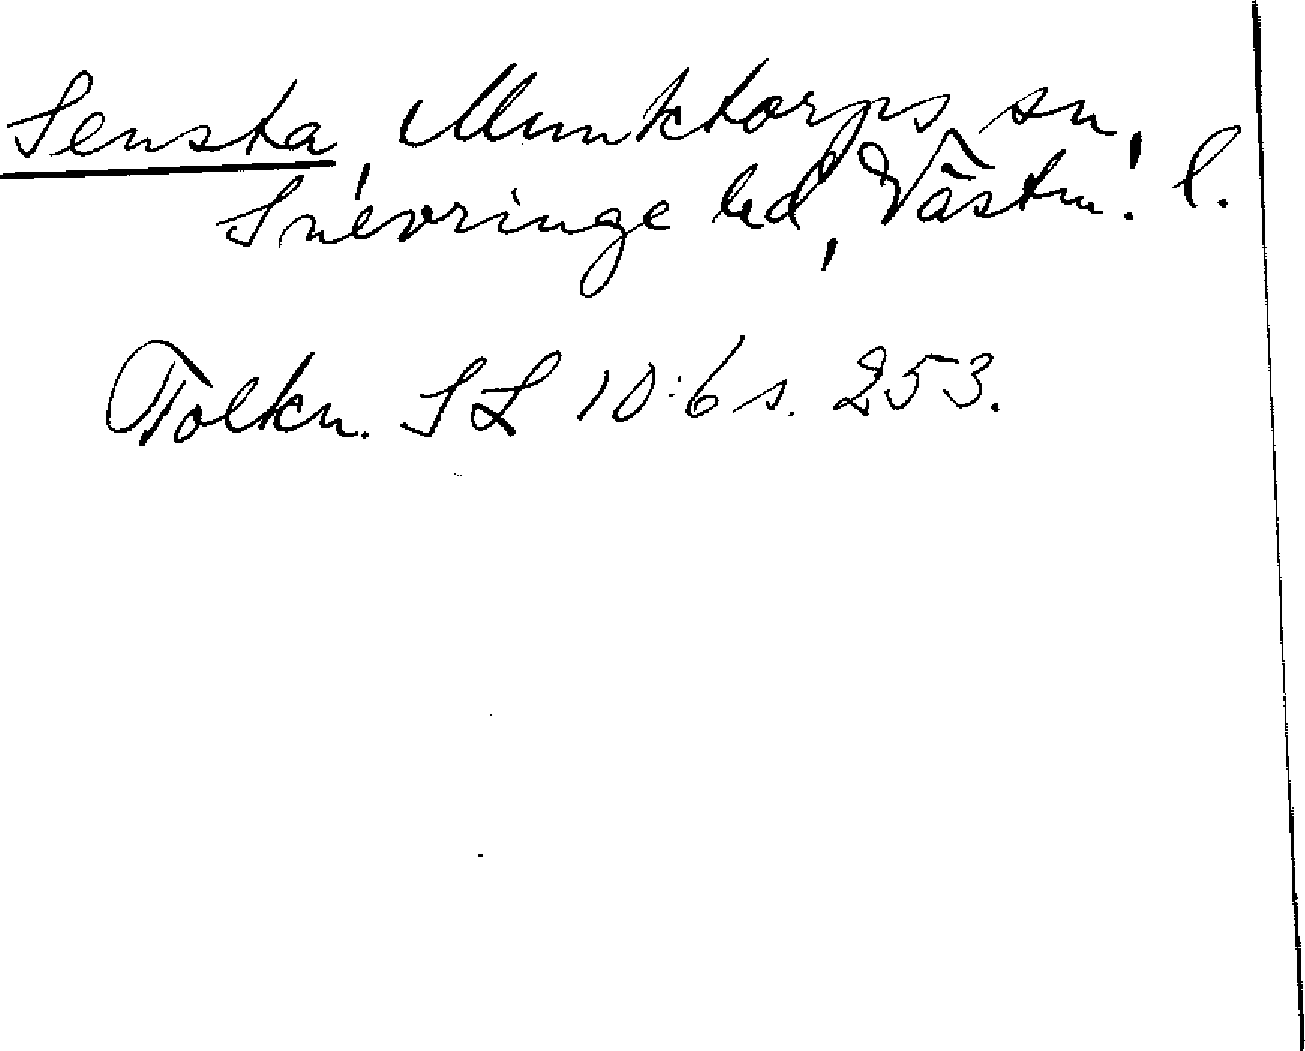 Sensta, Munktorps sn,
Snevringe hd, Västm. l.
Tolkn. SL 10:6 s. 253.